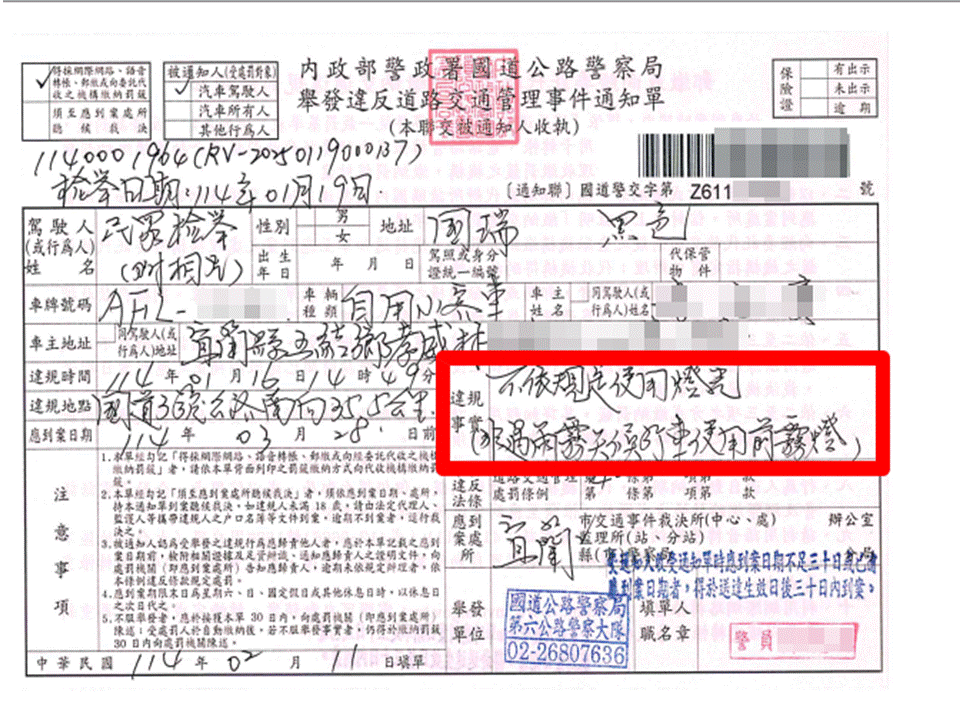 內政部警政署國道公路警察局
舉發違反道路交通管理事件通知單
(本聯交被通知人收執)
✓ 得採網際網路、語音轉帳、郵繳或向委託代收之機構繳納罰鍰
須至應到案處所聽候裁決
被通知人(受處罰對象)
✓ 汽車駕駛人
汽車所有人
其他行為人
保險證
有出示
未出示
逾期
1140001964(RV-20250119000137)
檢舉日期:114年01月19日.
〔通知聯〕國道警交字第 Z611 號
駕駛人(或行為人)姓名 民眾檢舉(附相片)
性別 男 女
地址 國瑞 黑色
出生年日 年 月 日
駕照或身分證統一編號
代保管物件
車牌號碼 AFL-
車輛種類 自用小客車
車主姓名 同駕駛人(或行為人)姓名
車主地址 同駕駛人(或行為人)地址 宜蘭縣五結鄉孝威村
違規時間 114年01月16日14時49分
違規地點 國道3號公路南向35.5公里
應到案日期 114年03月28日前
違規事實 不依規定使用燈光
(非遇雨霧天候行車使用前霧燈)
違反法條 道路交通管理處罰條例 第 條第 項第 款
注意事項
1.本單經勾記「得採網際網路、語音轉帳、郵繳或向經委託代收之機構繳納罰鍰」者,請依本單背面列印之罰鍰繳納方式向代收機構繳納。
2.本單經勾記「須至應到案處所聽候裁決」者,須依應到案日期、處所,持本通知單到案聽候裁決。如違規人未滿18歲,請由法定代理人、監護人等攜帶違規人之戶口名簿等文件到案,逾期不到案者,逕行裁決之。
3.被通知人認為受舉發之違規行為應歸責他人者,應於本單記載之應到案日期前,檢附相關證據及足資辨識、通知應歸責人之證明文件,向處罰機關(即應到案處所)告知應歸責人,逾期未依規定辦理者,依本條例違反條款規定處罰。
4.應到案期限末日為星期六、日、國定假日或其他休息日時,以休息日之次日代之。
5.不服舉發者,應於接獲本單30日內,向處罰機關(即應到案處所)陳述;受處罰人於自動繳納後,若不服舉發事實者,仍得於繳納罰鍰30日內向處罰機關陳述。
應到案處所 宜蘭
市交通事件裁決所(中心、處) 辦公室
監理所(站、分站)
縣(市)警察局 分局
受通知人收受通知單時應到案日期不足三十日或已逾應到案日期者,得於送達生效日後三十日內到案。
舉發單位
國道公路警察局
第六公路警察大隊
02-26807636
填單人職名章
警員
中華民國 114年02月11日填單